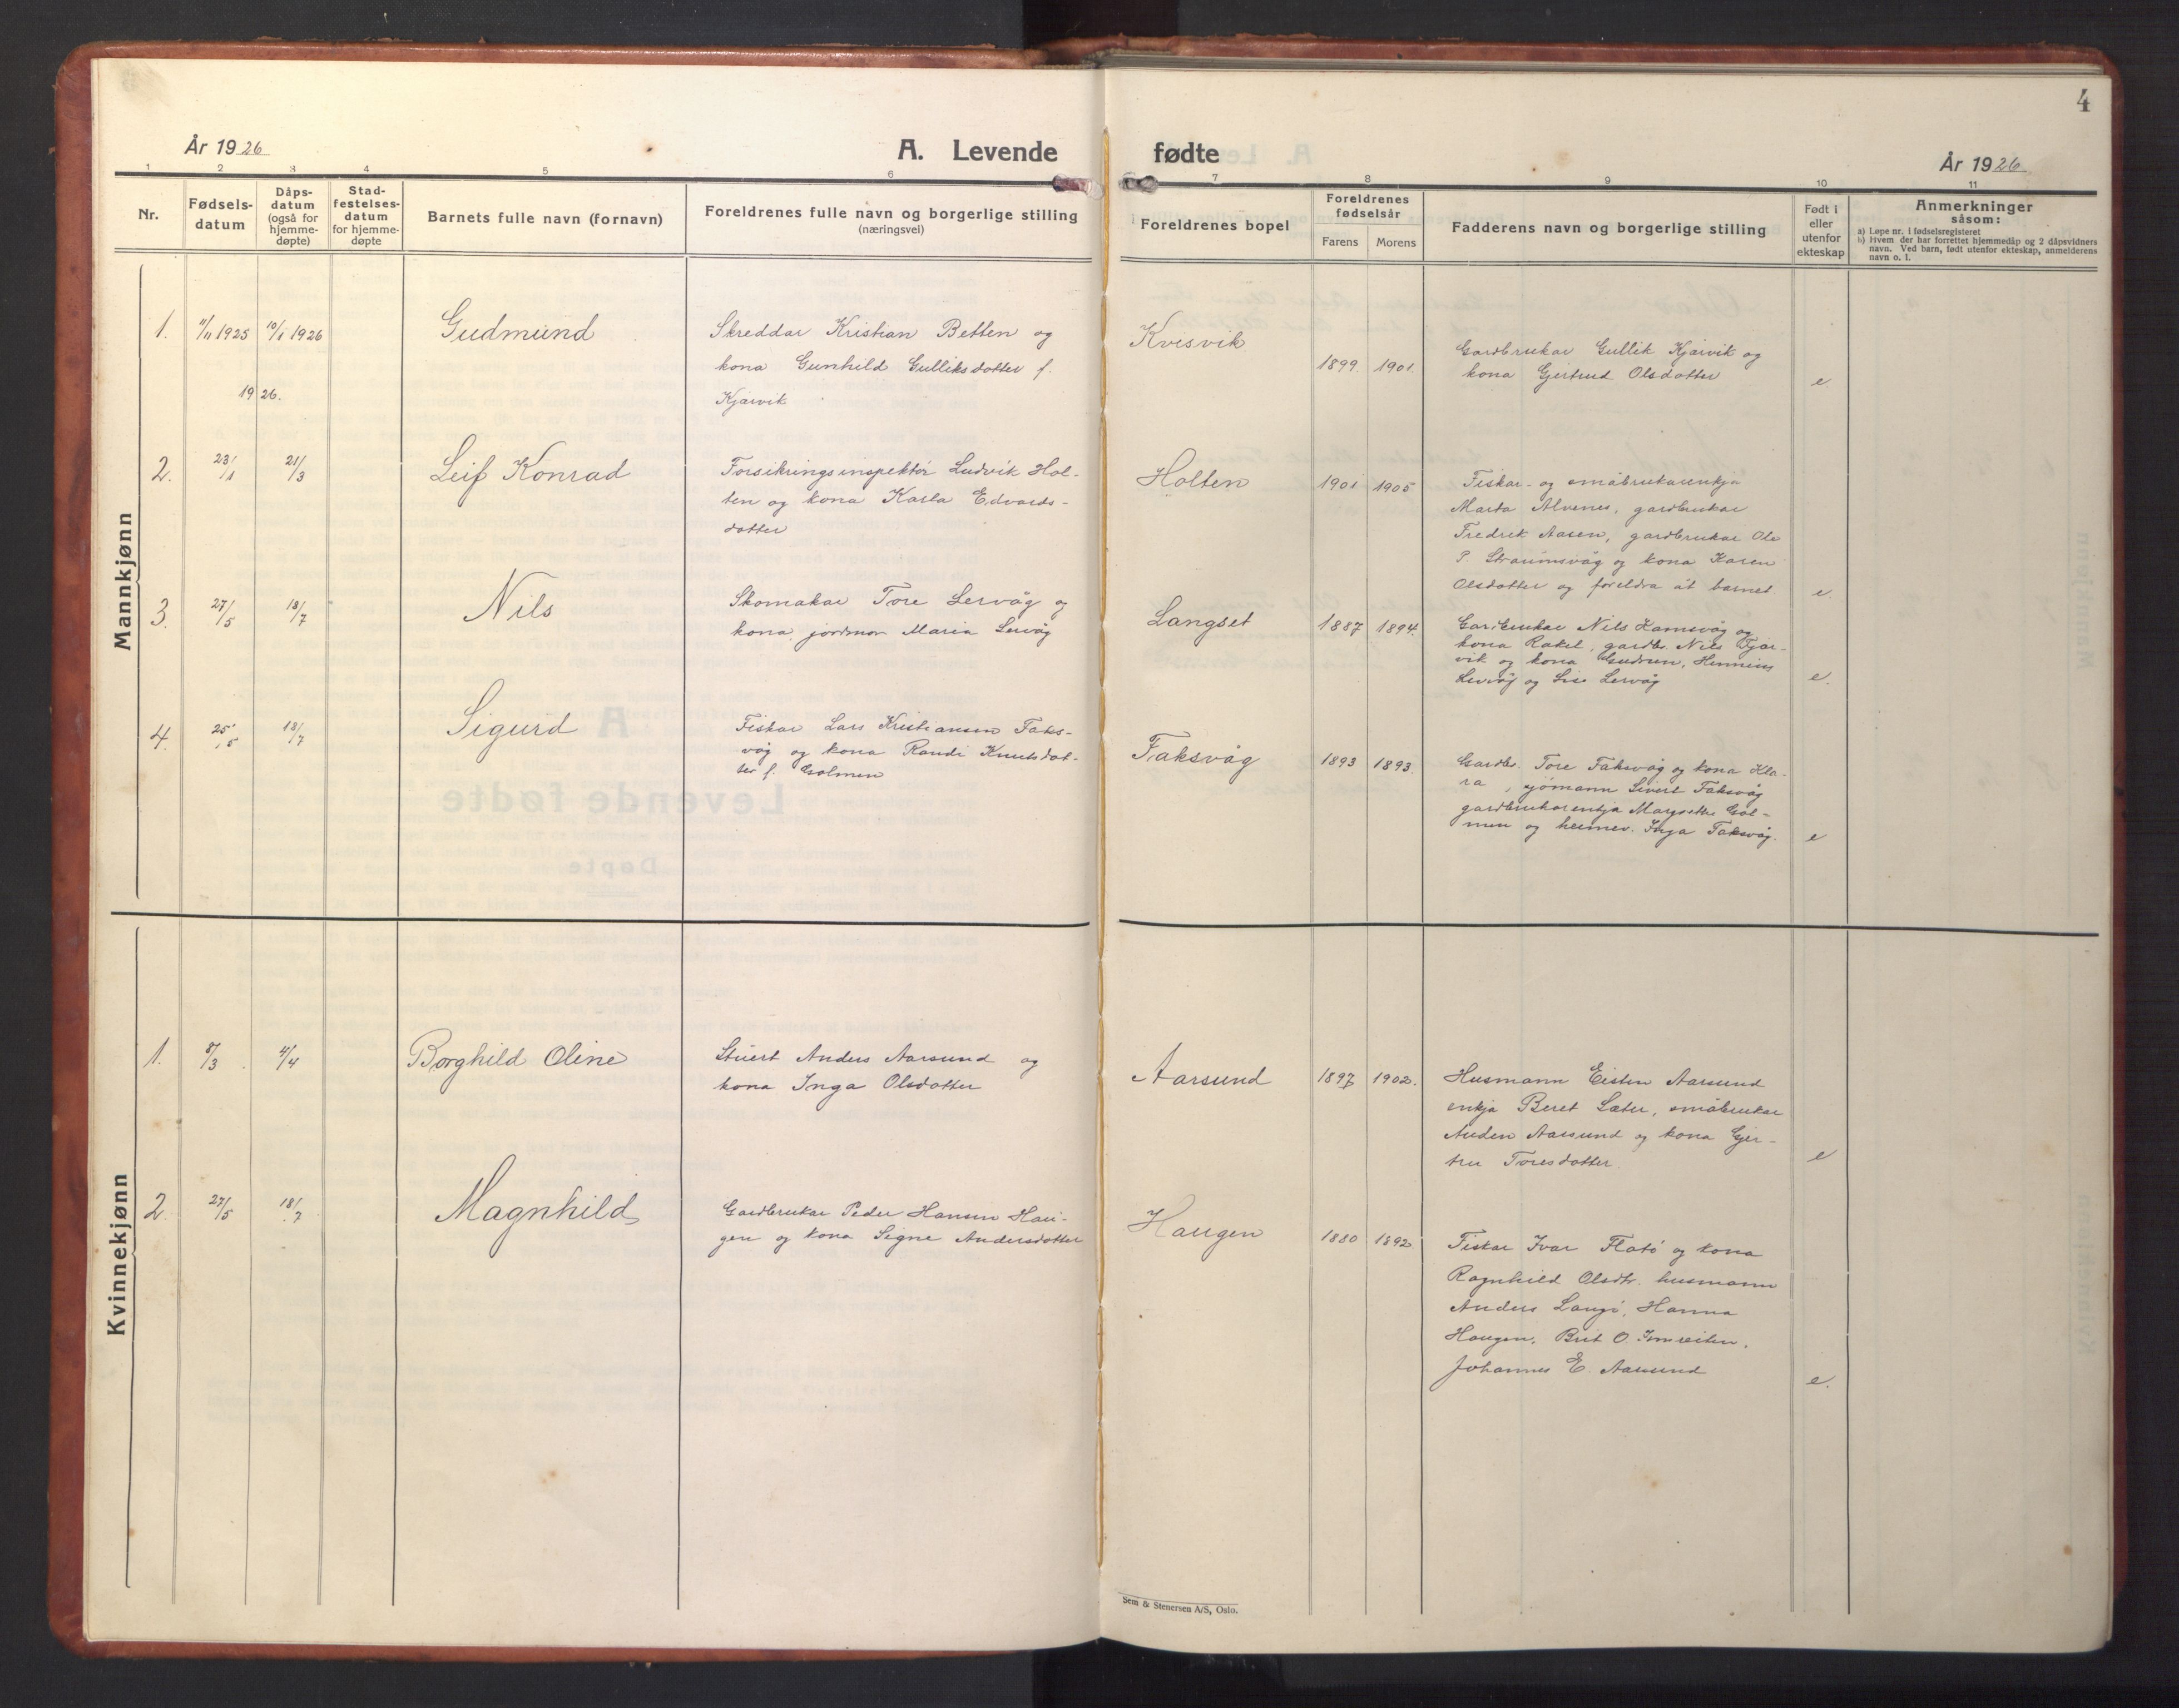 4
År 1926
A. Levende
fødte
År 1926
1 2 3 4 5 6
7 8 9 10 11
Nr.
Fødsels-
datum
Dåps-
datum
(også for
hjemme-
døpte)
Stad-
festelses-
datum
for hjemme-
døpte
Barnets fulle navn (fornavn)
Foreldrenes fulle navn og borgerlige stilling
(næringsvei)
Foreldrenes bopel
Foreldrenes
fødselsår
Farens Morens
Fadderens navn og borgerlige stilling
Født i
eller
utenfor
ekteskap
Anmerkninger
såsom:
a) Løpe nr. i fødselsregisteret
b) Hvem der har forrettet hjemmedåp og 2 dåpsvidners
navn. Ved barn, født utenfor ekteskap, anmelderens
navn o. l.
Mannkjønn
1. 11/11 1925 10/1 1926 Gudmund
Skreddar Kristian Betten og
kona Gunhild Gulliksdotter f.
Kjørvik
Kvisvik
1899. 1901.
Gardbrukar Gullik Kjørvik og
kona Gjertrud Olsdotter
e
1926.
2. 23/1 21/3 Leif Konrad
Forsikringsinspektør Ludvik Hol-
ten og kona Karla Edvards-
dotter
Holten
1901 1905
Fiskar- og småbrukarenkja
Marta Alvenes, gardbrukar
Fredrik Aasen, gardbrukar Ole
P. Straumsvåg og kona Karen
Olsdotter og foreldra åt barnet.
e.
3. 27/5 18/7 Nils
Skomakar Tore Lervåg og
kona, jordmor Maria Lervåg
Langset
1887 1894.
Gardbrukar Nils Hamsvåg og
kona Rakel, gardbr. Nils Fjær-
vik og kona Gudrun,
Lervåg og Lise Lervåg
e.
4. 25/5 18/7 Sigurd
Fiskar Lars Kristiansen Faks-
våg og kona Randi Knutsdot-
ter f. Golmen
Faksvåg
1893 1893.
Gardbr. Tore Faksvåg og kona Kla-
ra, sjømann Sivert Faksvåg
gardbrukarenkja Margrethe Gol-
men og heimev. Inga Faksvåg.
e
Kvinnekjønn
1. 8/3 4/4 Borghild Oline
Stuert Anders Aarsund og
kona Inga Olsdotter
Aarsund
1897 1902.
Husmann Eisten Aarsund
enkja Beret Sæter, småbrukar
Auden Aarsund og kona Gjer-
tru Toresdotter.
e
2. 27/5 18/7 Magnhild
Gardbrukar Peder Hansen Hau-
gen og kona Signe Andersdotter
Haugen
1880 1892
Fiskar Ivar Flatø og kona
Ragnhild Olsdtr. husmann
Anders Langø, Hanna
Haugen, Brit O.
Johannes E. Aarsund
e.
Sem & Stenersen A/S, Oslo.